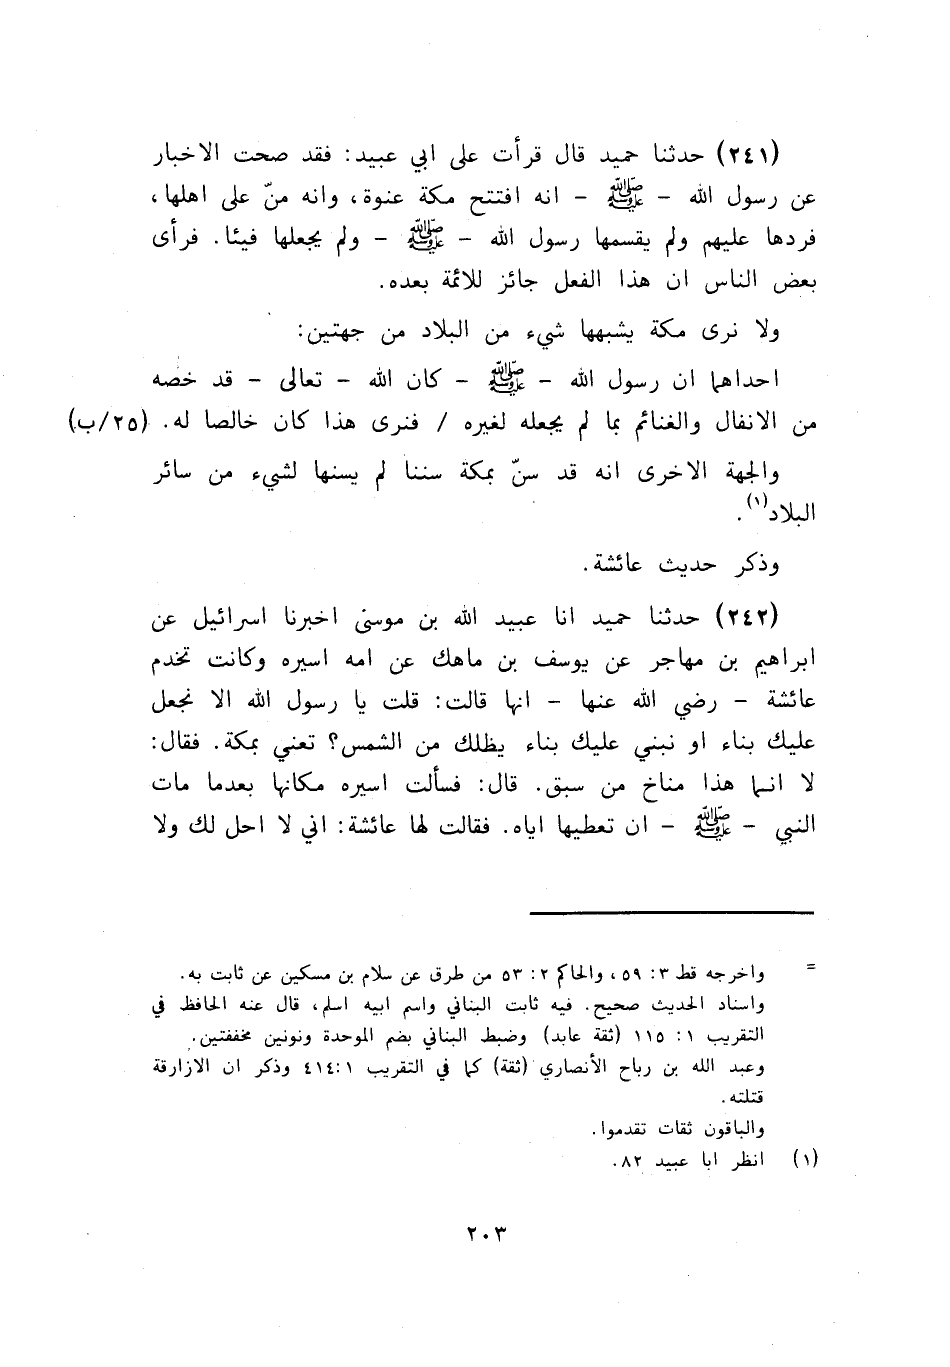 (٢٤١) حدثنا حميد قال قرأت على ابي عبيد: فقد صحت الاخبار
عن رسول الله - ﷺ - انه افتتح مكة عنوة، وانه منّ على اهلها،
فردها عليهم ولم يقسمها رسول الله - ﷺ - ولم يجعلها فيئا. فرأى
بعض الناس ان هذا الفعل جائز للائمة بعده.
ولا نرى مكة يشبهها شيء من البلاد من جهتين:
احداهما ان رسول الله - ﷺ - كان الله - تعالى - قد خصه
من الانفال والغنائم بما لم يجعله لغيره / فنرى هذا كان خالصا له. (٢٥/ب)
والجهة الاخرى انه قد سنّ بمكة سننا لم يسنها لشيء من سائر
البلاد(١).
وذكر حديث عائشة.
(٢٤٢) حدثنا حميد انا عبيد الله بن موسى اخبرنا اسرائيل عن
ابراهيم بن مهاجر عن يوسف بن ماهك عن امه اسيره وكانت تخدم
عائشة - رضي الله عنها - انها قالت: قلت يا رسول الله الا نجعل
عليك بناء او نبني عليك بناء يظلك من الشمس؟ تعني بمكة. فقال:
لا انـما هذا مناخ من سبق. قال: فسألت اسيره مكانها بعدما مات
النبي - ﷺ - ان تعطيها اياه. فقالت لها عائشة: اني لا احل لك ولا
= واخرجه قط ٣: ٥٩، والحاكم ٢: ٥٣ من طرق عن سلام بن مسكين عن ثابت به.
واسناد الحديث صحيح. فيه ثابت البناني واسم ابيه اسلم، قال عنه الحافظ في
التقريب ١: ١١٥ (ثقة عابد) وضبط البناني بضم الموحدة ونونين مخففتين.
وعبد الله بن رباح الأنصاري (ثقة) كما في التقريب ٤١٤:١ وذكر ان الازارقة
قتلته.
والباقون ثقات تقدموا.
(١) انظر ابا عبيد ٨٢.
٢٠٣